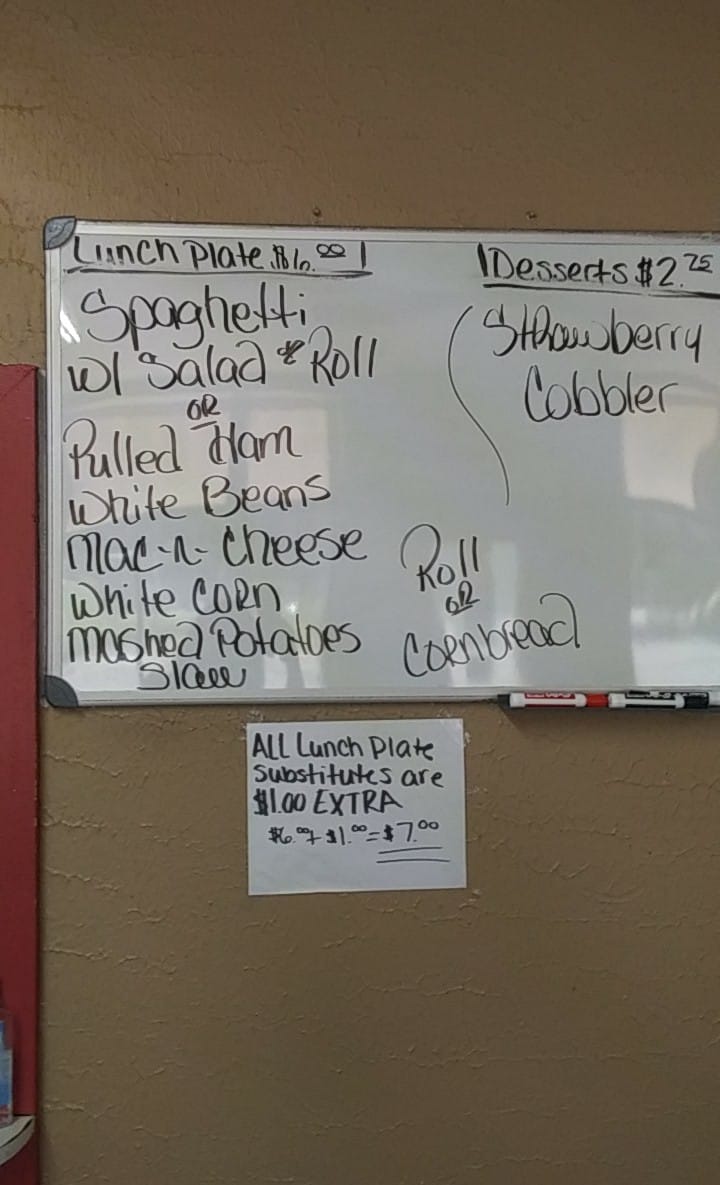 Lunch Plate $6.00
Spaghetti
w/ Salad & Roll
OR
Pulled Ham
White Beans
Mac-n-Cheese
White Corn
Mashed Potatoes
Slaw
Roll
OR
Cornbread
Desserts $2.75
Strawberry
Cobbler
ALL Lunch Plate
Substitutes are
$1.00 EXTRA
$6.00 + $1.00 = $7.00